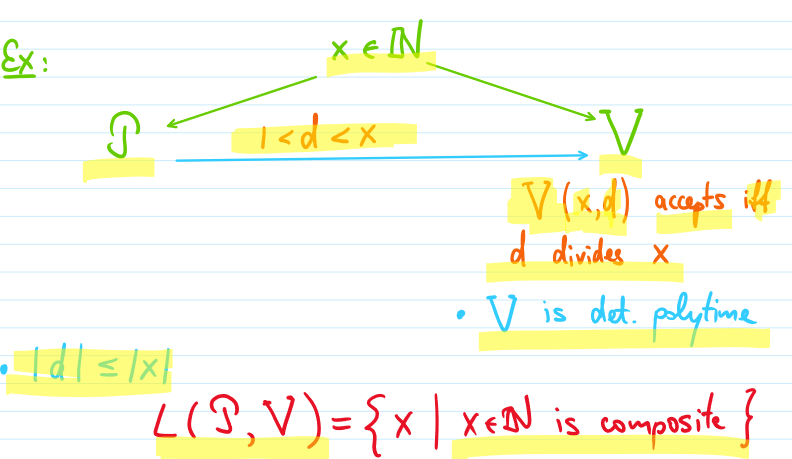 Ex:
x ∈ ℕ
P
1 < d < x
V
V(x,d) accepts iff
d divides x
• V is det. polytime
• |d| ≤ |x|
L(P,V) = { x | x∈ℕ is composite }